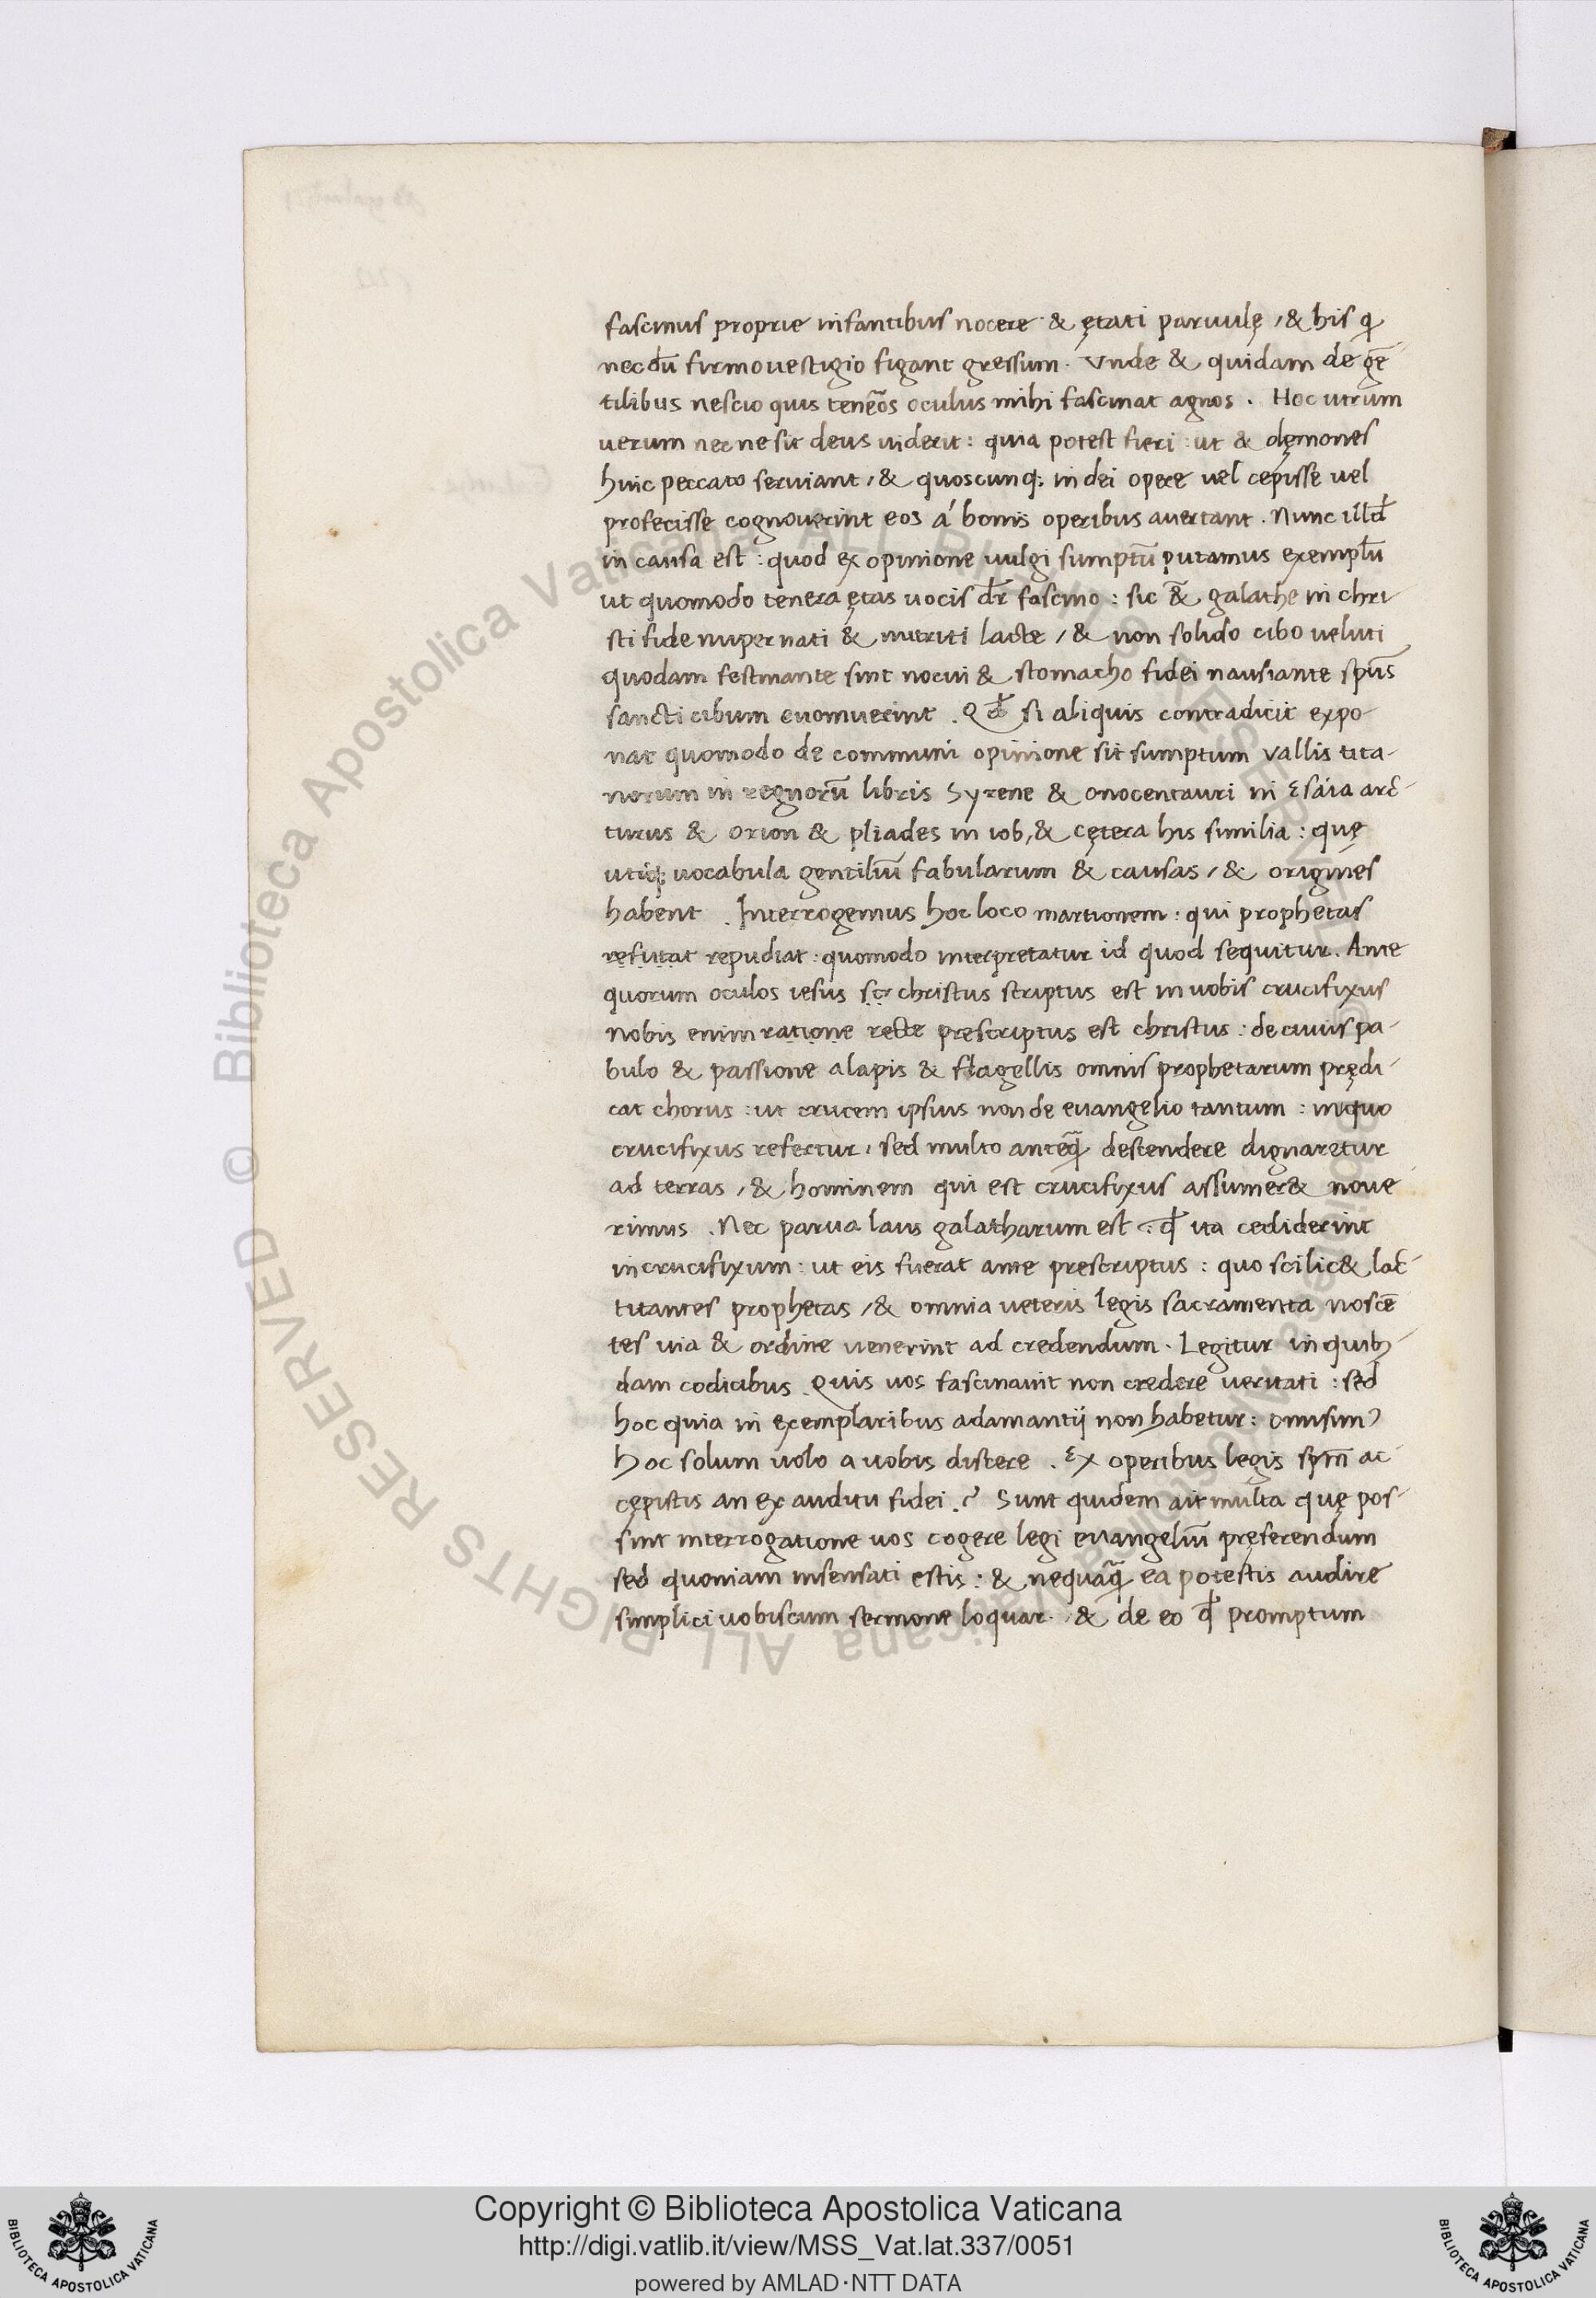 fascinus proprie infantibus nocere & ętati paruulę / & his q̣
necdū firmo uestigio figant gressum. Vnde & quidam de gē
tilibus nescio quis teneōs oculus mihi fascinat agnos. Hoc utrum
uerum nec ne sit deus uiderit: quia potest fieri: ut & dęmones
huic peccato seruiant / & quoscunq; in dei opere uel cepisse uel
profecisse cognouerint eos á bonis operibus auertant. Nunc illđ
in causa est: quod ex opinione uulgi sumptū putamus exemplū
ut quomodo tenera ętas uocis dr̄ fascino: sic & galathe in chri-
sti fide nuper nati & nutriti lacte / & non solido cibo ueluti
quodam festinante sint nocui & stomacho fidei nausiante spūs
sancti cibum euomuerint. Qđ si aliquis contradicit expo-
nat quomodo de communi opinione sit sumptum vallis tita-
norum in regnorū libris Syrene & onocentauri in Esáia arc-
turus & orion & pliades in iob, & cętera his similia: quę
utiq; uocabula gentiliū fabularum & causas / & origines
habent. Interrogemus hoc loco martionem: qui prophetas
refutat repudiat: quomodo interpretatur id quod sequitur. Ante
quorum oculos iesus sc christus scriptus est in uobis crucifixus
Nobis enim ratione recte prescriptus est christus: de cuius pa-
bulo & passione alapis & flagellis omnis prophetarum prędi-
cat chorus: ut crucem ipsius non de euangelio tantum: in quo
crucifixus refertur, sed multo anteq̄ descendere dignaretur
ad terras / & hominem qui est crucifixus assumer& noue
rimus. Nec parua laus galatharum est: qđ ita cediderint
in crucifixum: ut eis fuerat ante prescriptus: quo scilic& lac-
titantes prophetas / & omnia ueteris legis sacramenta noscē
tes uia & ordine uenerint ad credendum. Legitur in quib-
dam codicibus. Quis uos fascinauit non credere ueritati: sed
hoc quia in exemplaribus adamantij non habetur: omisim9
Hoc solum uolo a uobis discere. Ex operibus legis spm̄ ac-
cępistis an ex auditu fidei.? Sunt quidem ait multa quę pos-
sint interrogatione uos cogere legi euangeliū pręferendum
sed quoniam insensati estis: & nequaq̄ ea potestis audire
simplici uobiscum sermone loquar. & de eo qđ promptum
© Biblioteca Apostolica Vaticana ALL RIGHTS RESERVED
Copyright © Biblioteca Apostolica Vaticana
http://digi.vatlib.it/view/MSS_Vat.lat.337/0051
powered by AMLAD·NTT DATA
BIBLIOTECA APOSTOLICA VATICANA
BIBLIOTECA APOSTOLICA VATICANA